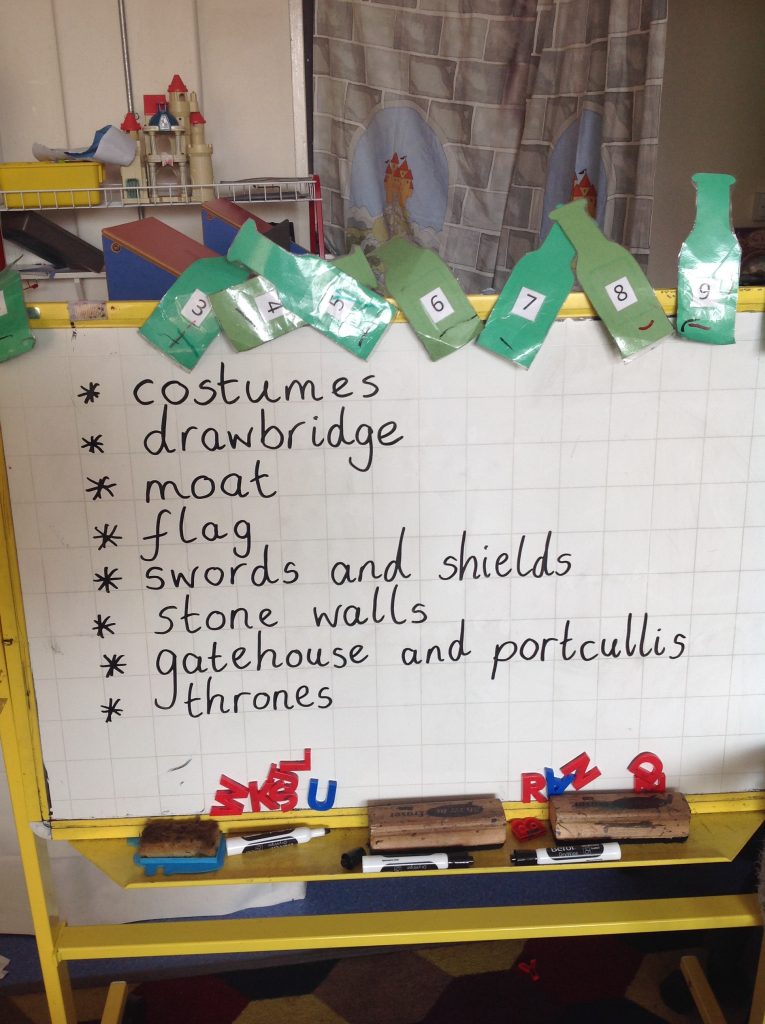 3 4 5 6 7 8 9
* costumes
* drawbridge
* moat
* flag
* swords and shields
* stone walls
* gatehouse and portcullis
* thrones
U
R